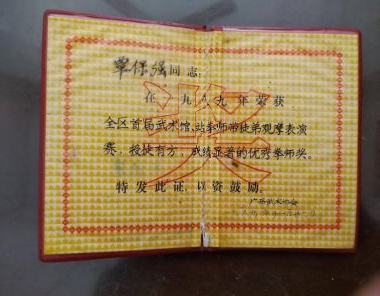 覃保强同志:
在一九八九年荣获
全区首届武术馆、站拳师带徒弟观摩表演
赛,授技有方,成绩显著的优秀拳师奖。
特发此证,以资鼓励。
广西武术协会
奖